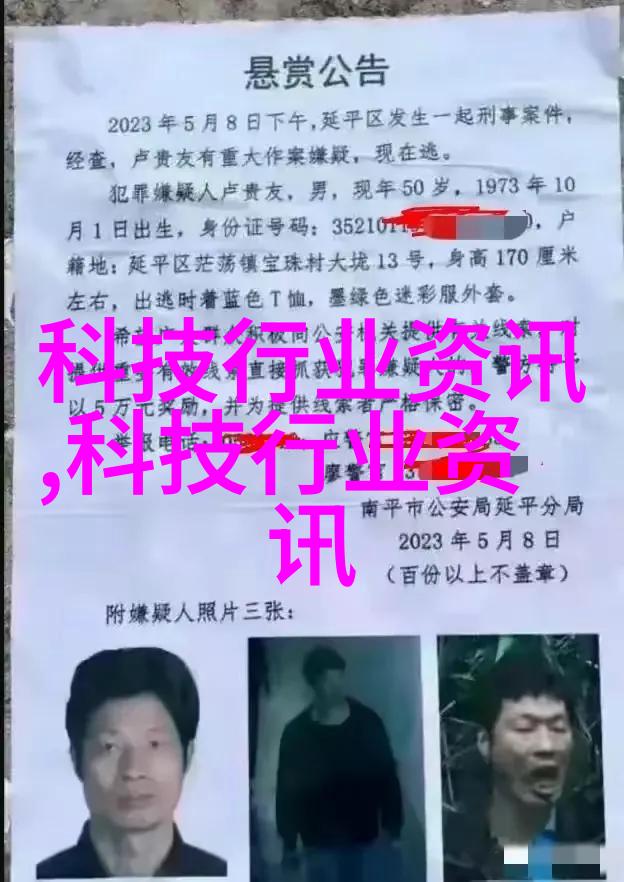 悬赏公告
2023年5月8日下午,延平区发生一起刑事案件,
经查,卢贵友有重大作案嫌疑,现在逃。
犯罪嫌疑人卢贵友,男,现年50岁,1973年10
月1日出生,身份证号码:3521011 户
籍地:延平区茫荡镇宝珠村大垅13号,身高170厘米
左右,出逃时着蓝色T恤,墨绿色迷彩服外套。
科技行业资讯
以5万元奖励,并为提供线索者严格保密。
,科技行业资
举报电话:
廖警官
讯
南平市公安局延平分局
2023年5月8日
(百份以上不盖章)
附嫌疑人照片三张: